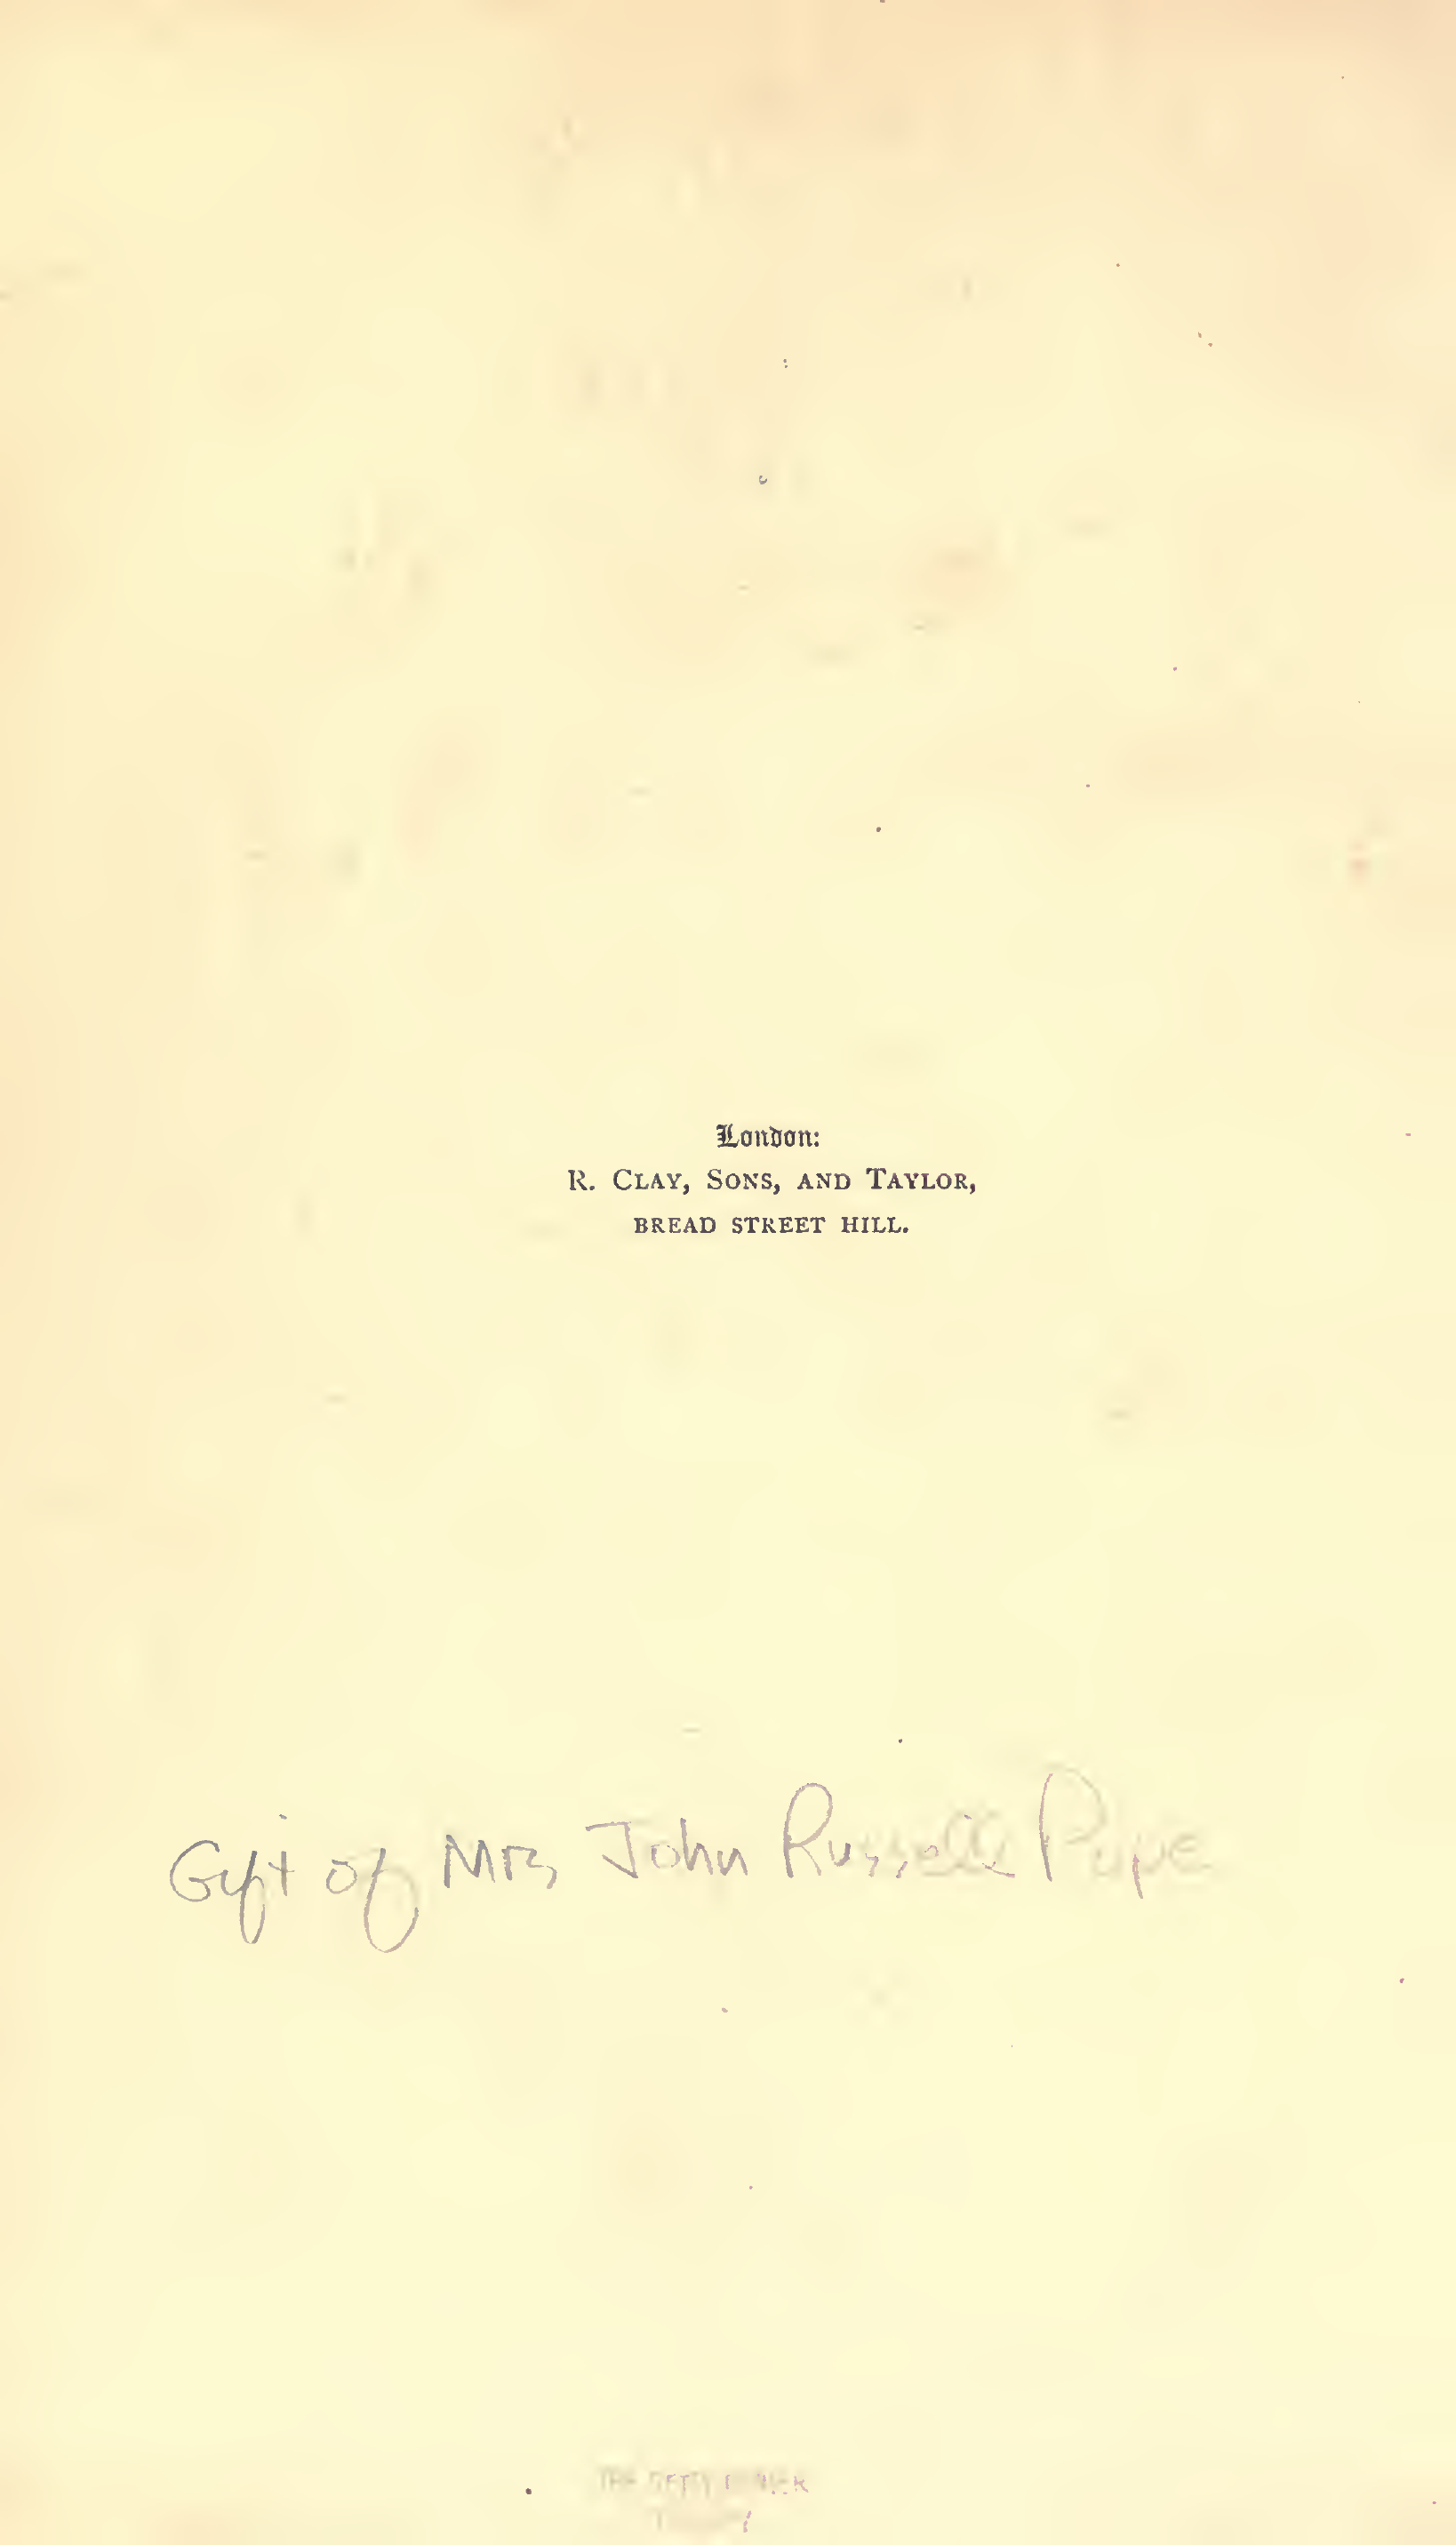 London:
R. CLAY, SONS, AND TAYLOR,
BREAD STREET HILL.
Gift of Mrs John Russell Pope
THE GETTY CENTER